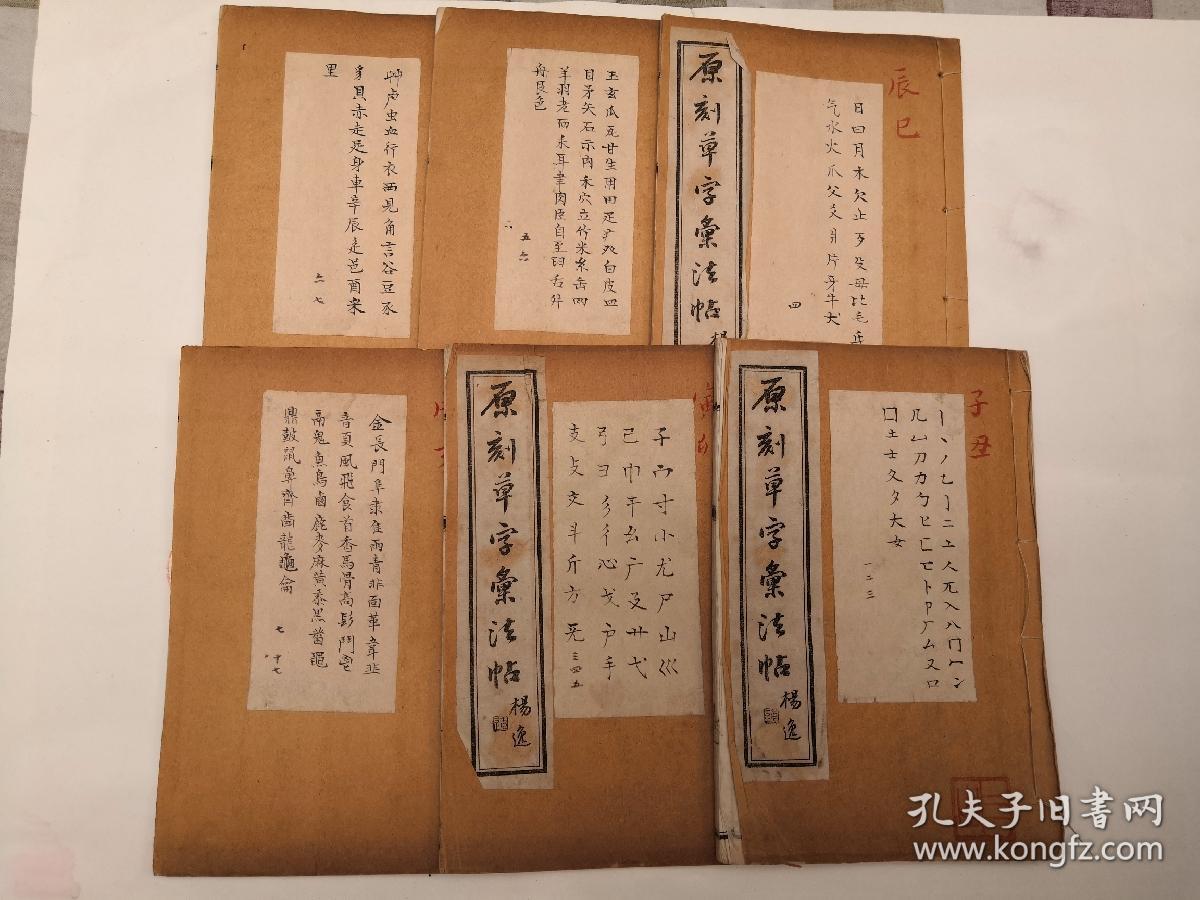 艸虍虫血行衣襾見角言谷豆豕
豸貝赤走足身車辛辰辵邑酉釆
里
六 七
玉玄瓜瓦甘生用田疋疒癶白皮皿
目矛矢石示禸禾穴立竹米糸缶网
羊羽老而耒耳聿肉臣自至臼舌舛
舟艮色
五 六
原刻草字彙法帖
楊
辰巳
日曰月木欠止歹殳毋比毛氏
气水火爪父爻爿片牙牛犬
四
金長門阜隶隹雨青非面革韋韭
音頁風飛食首香馬骨高髟鬥鬯
鬲鬼魚鳥鹵鹿麥麻黃黍黑黹黽
鼎鼓鼠鼻齊齒龍龜龠
七
原刻草字彙法帖
楊逸
子宀寸小尢尸山巛
己巾干幺广廴廾弋
弓彐彡彳心戈戶手
支攴文斗斤方无
三四五
原刻草字彙法帖
楊逸
子丑
一丨丶丿乙亅二亠人兀入八冂冖冫
几凵刀力勹匕匚匸卜卩厂厶又口
囗土士夂夕大女
一二三
孔夫子旧书网
www.kongfz.com